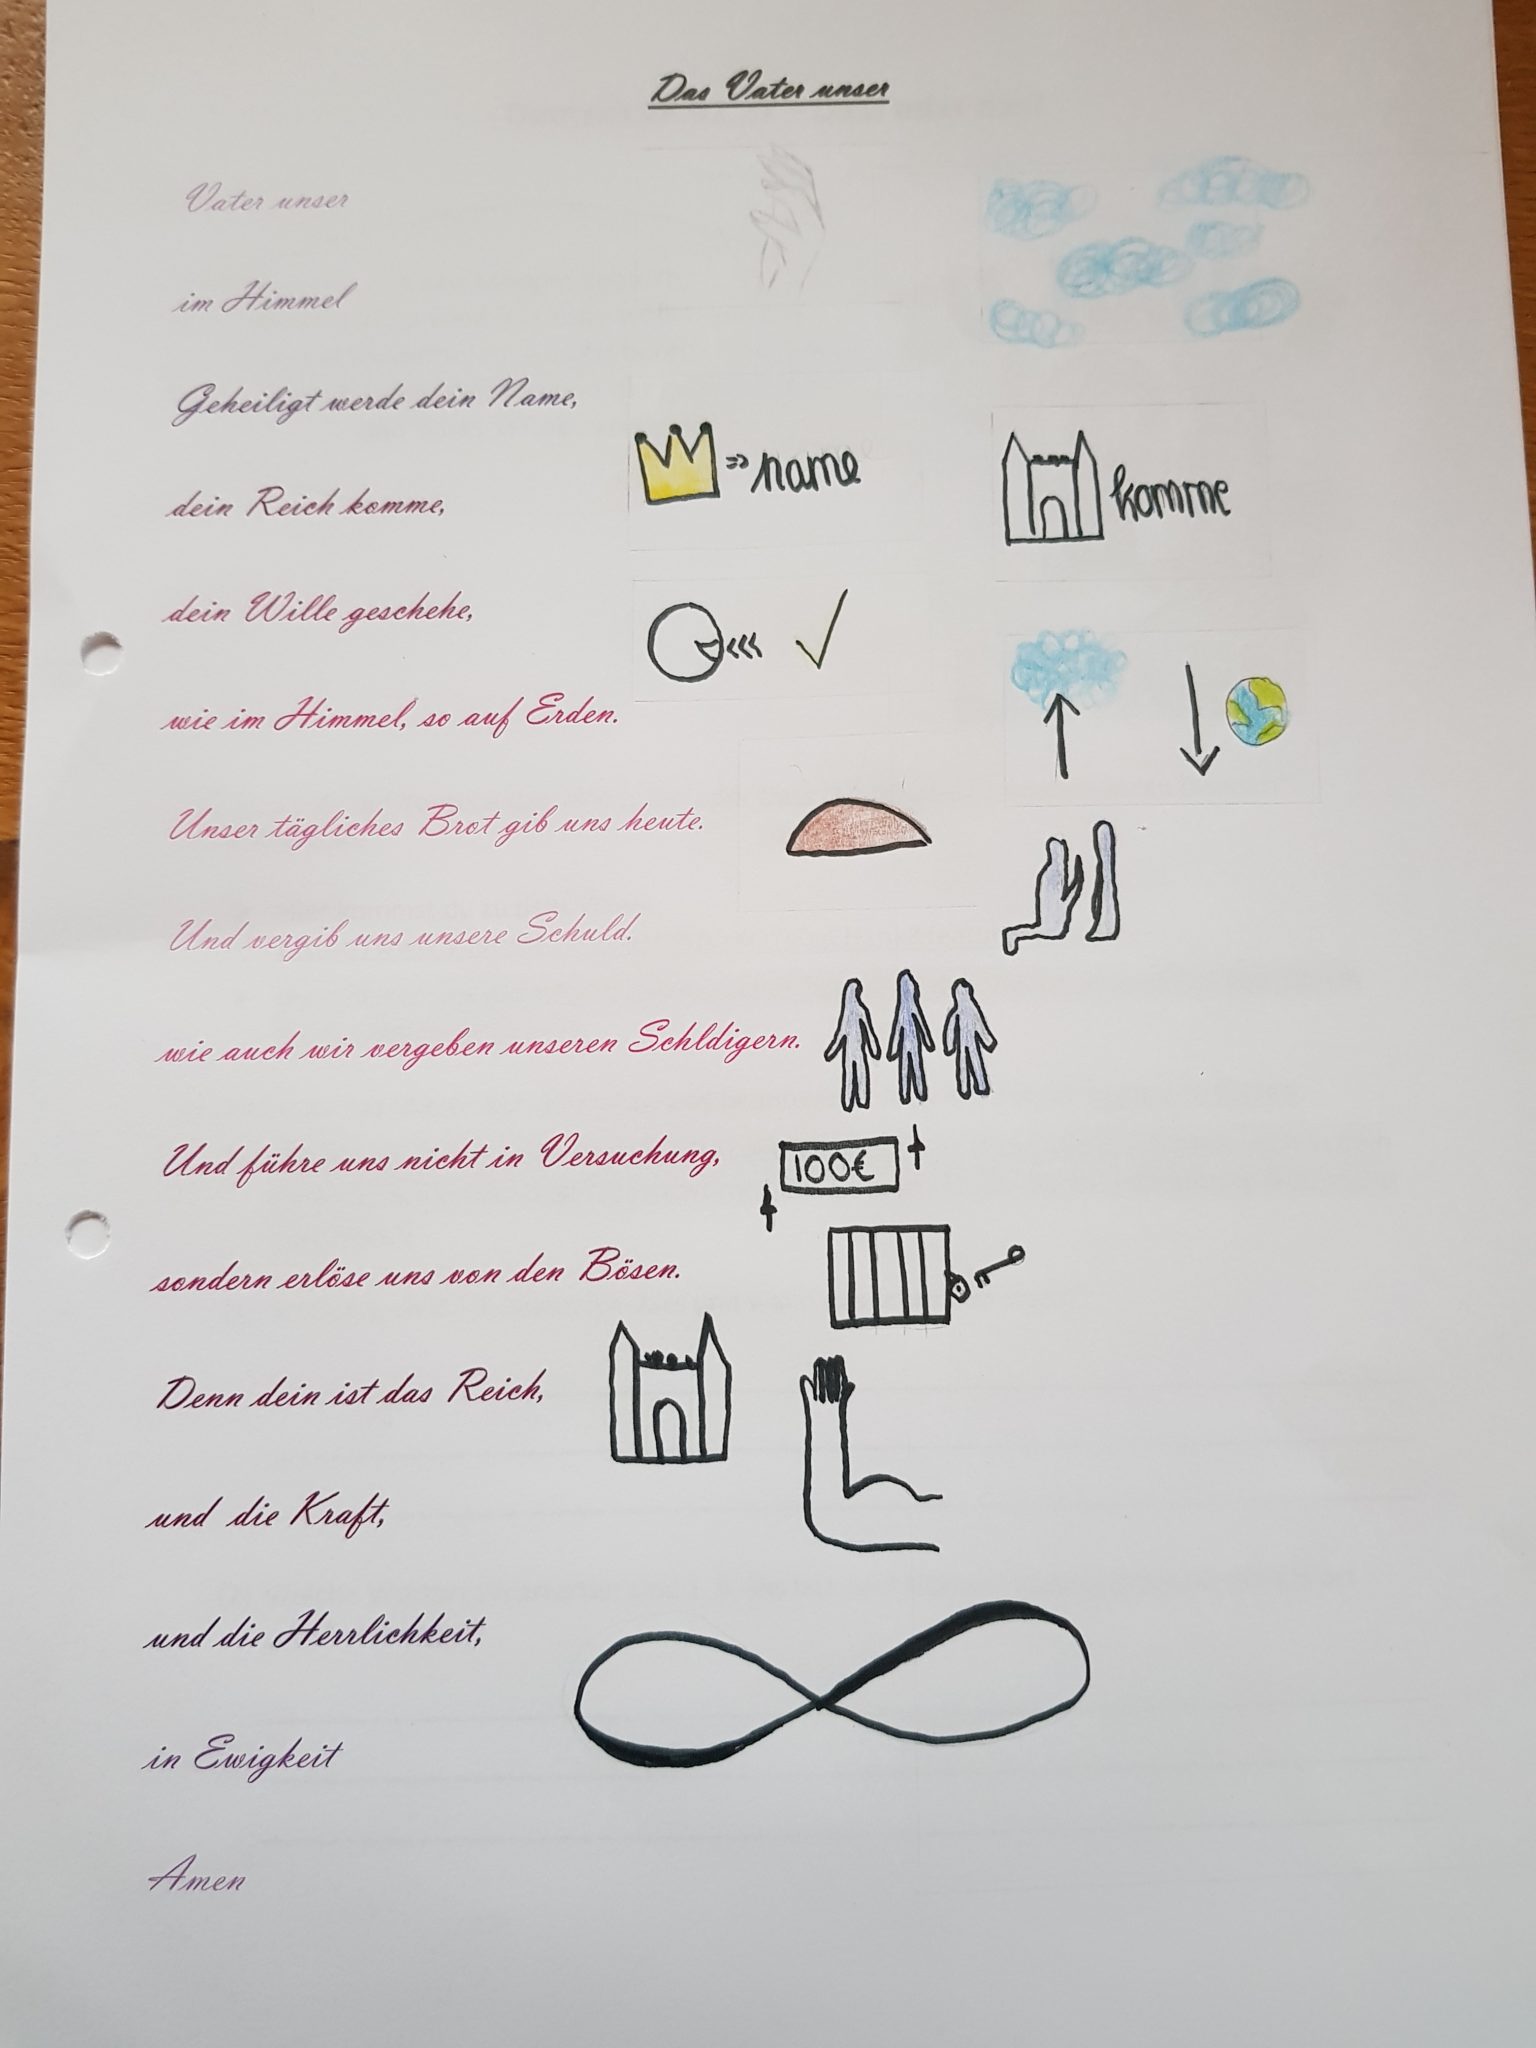 Das Vater unser
Vater unser
im Himmel
Geheiligt werde dein Name,
=> name
dein Reich komme,
komme
dein Wille geschehe,
wie im Himmel, so auf Erden.
Unser tägliches Brot gib uns heute.
Und vergib uns unsere Schuld.
wie auch wir vergeben unseren Schldigern.
Und führe uns nicht in Versuchung,
100€
sondern erlöse uns von den Bösen.
Denn dein ist das Reich,
und die Kraft,
und die Herrlichkeit,
in Ewigkeit
Amen